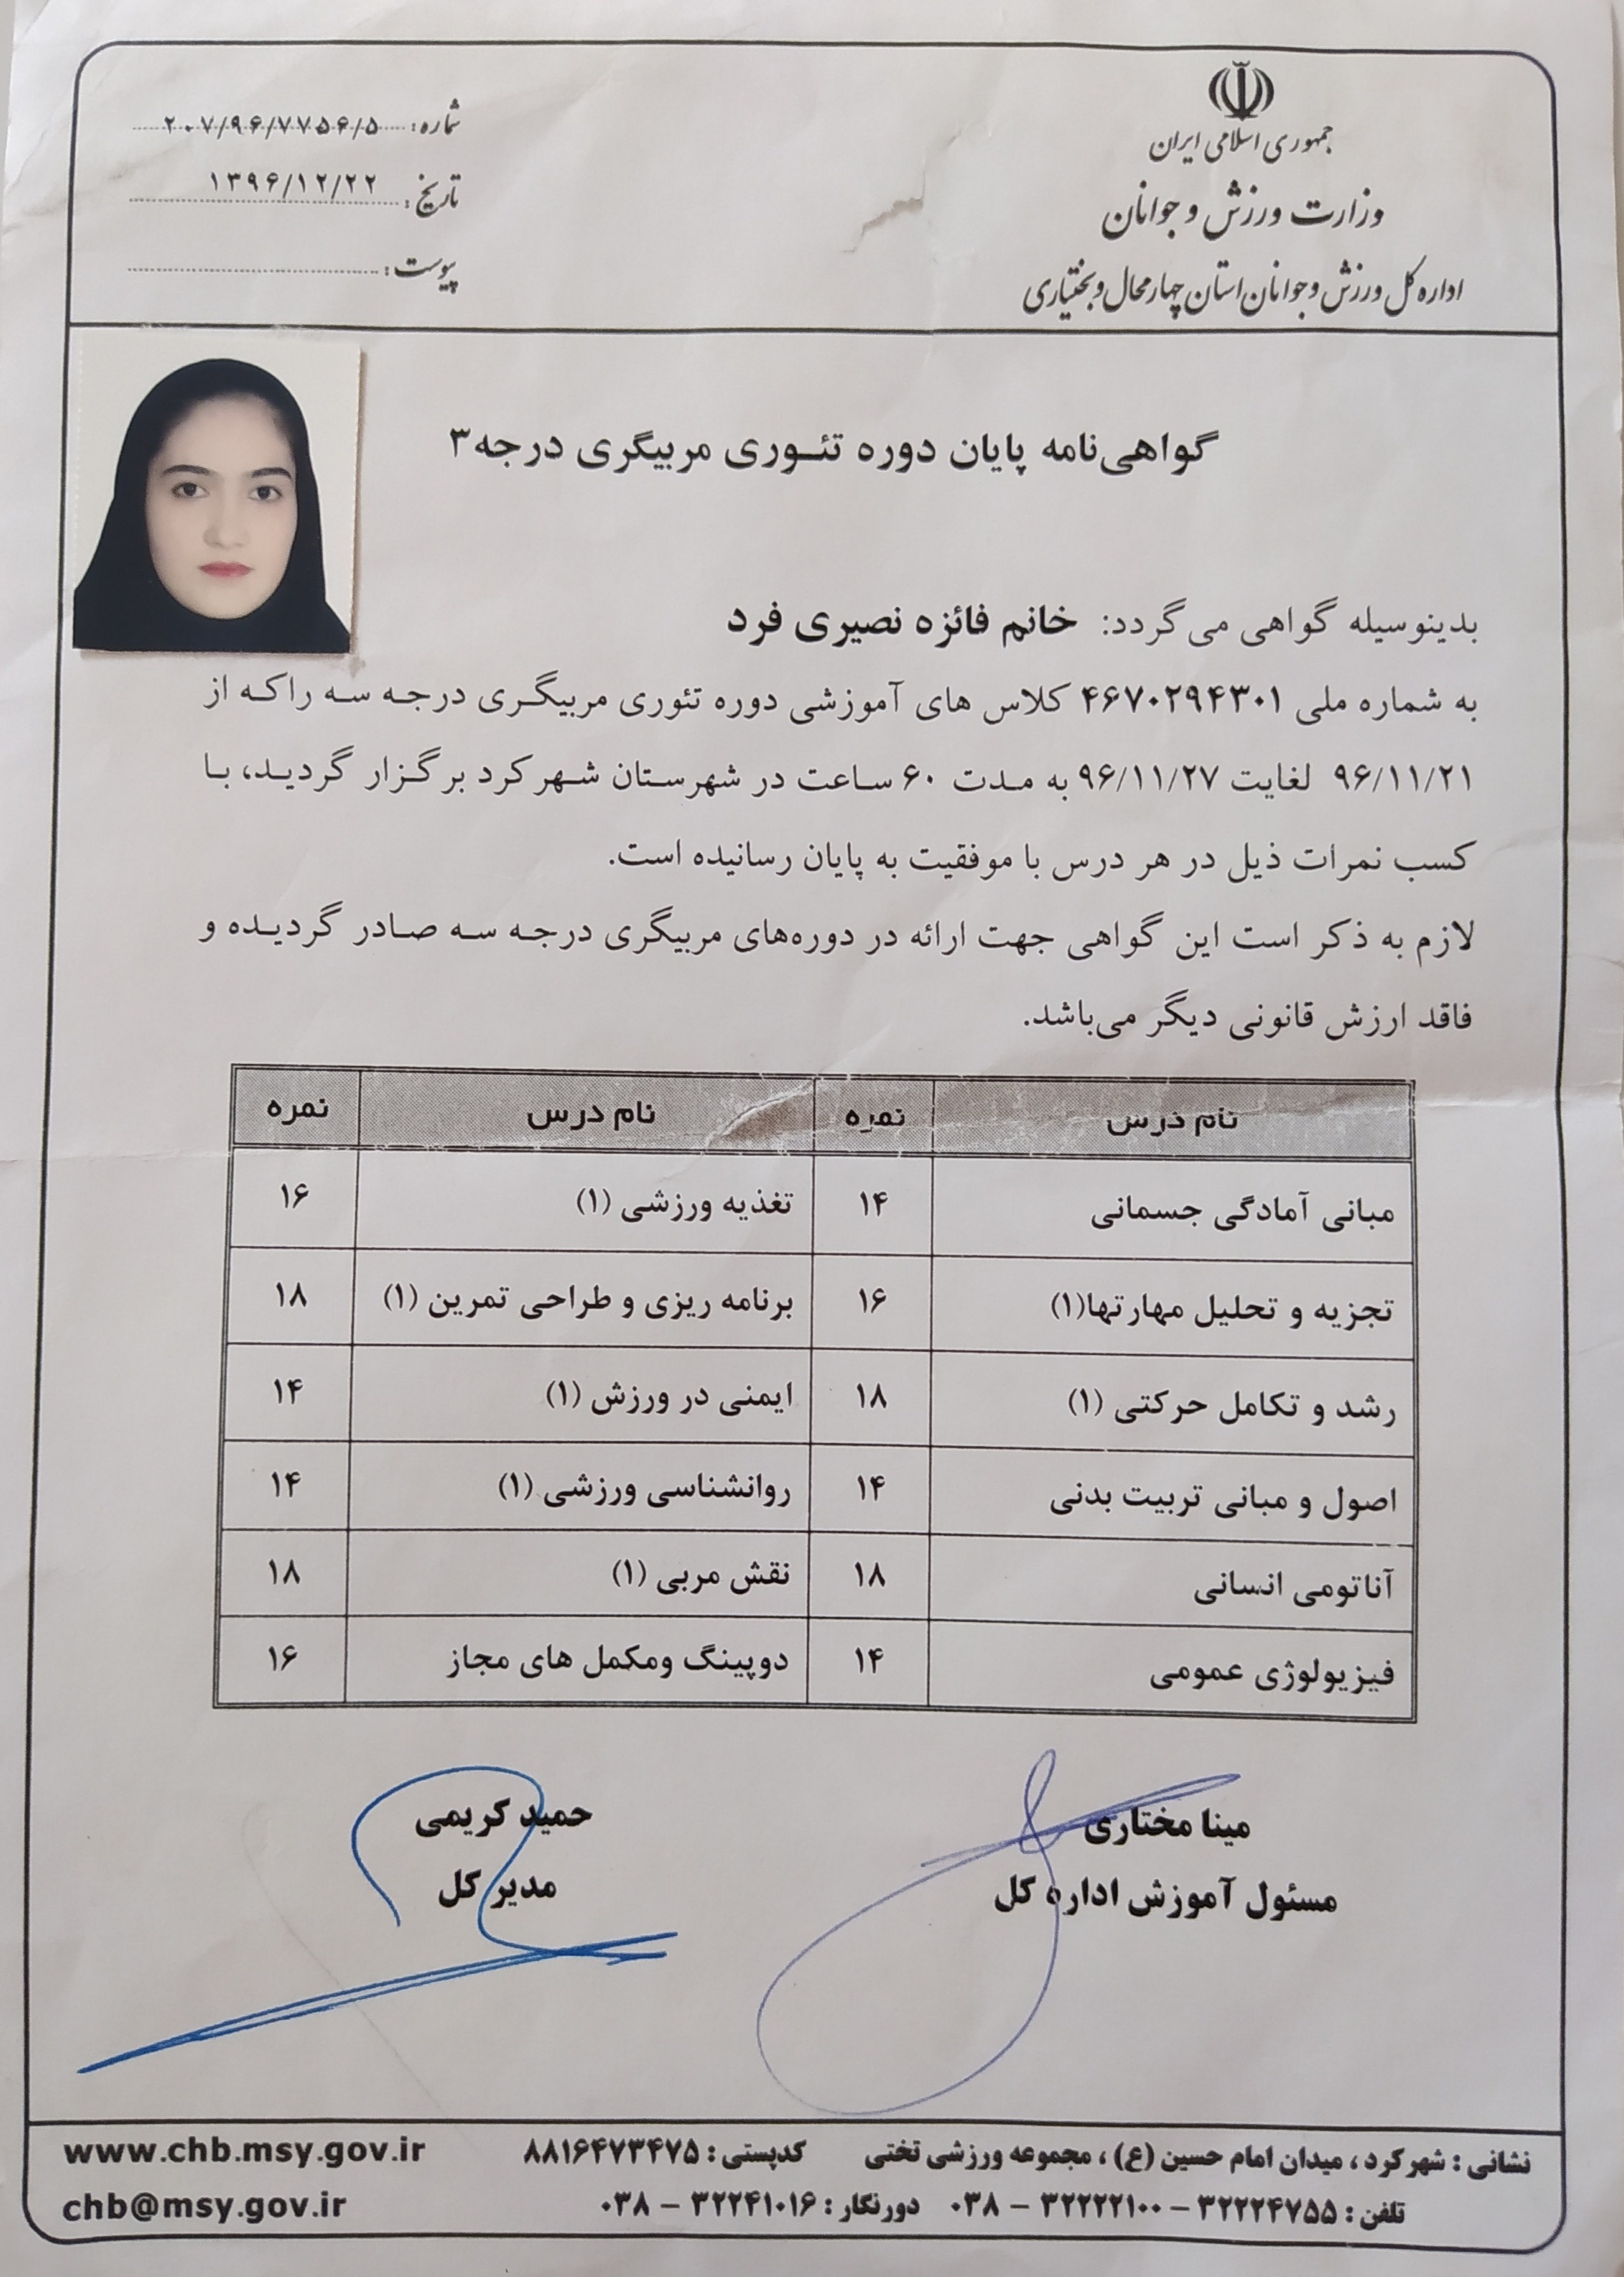 جمهوری اسلامی ایران
وزارت ورزش و جوانان
اداره کل ورزش و جوانان استان چهارمحال و بختیاری
شماره: ۲۰۷/۹۶/۷۷۵۶/۵
تاریخ: ۱۳۹۶/۱۲/۲۲
پیوست:
گواهی‌نامه پایان دوره تئوری مربیگری درجه۳
بدینوسیله گواهی می گردد: خانم فائزه نصیری فرد
به شماره ملی ۴۶۷۰۲۹۴۳۰۱ کلاس های آموزشی دوره تئوری مربیگری درجه سه راکه از
۹۶/۱۱/۲۱ لغایت ۹۶/۱۱/۲۷ به مدت ۶۰ ساعت در شهرستان شهرکرد برگزار گردید، با
کسب نمرات ذیل در هر درس با موفقیت به پایان رسانیده است.
لازم به ذکر است این گواهی جهت ارائه در دوره‌های مربیگری درجه سه صادر گردیده و
فاقد ارزش قانونی دیگر می‌باشد.
نام درس نمره نام درس نمره
مبانی آمادگی جسمانی ۱۴ تغذیه ورزشی (۱) ۱۶
تجزیه و تحلیل مهارتها(۱) ۱۶ برنامه ریزی و طراحی تمرین (۱) ۱۸
رشد و تکامل حرکتی (۱) ۱۸ ایمنی در ورزش (۱) ۱۴
اصول و مبانی تربیت بدنی ۱۴ روانشناسی ورزشی (۱) ۱۴
آناتومی انسانی ۱۸ نقش مربی (۱) ۱۸
فیزیولوژی عمومی ۱۴ دوپینگ ومکمل های مجاز ۱۶
مینا مختاری
مسئول آموزش اداره کل
حمید کریمی
مدیر کل
نشانی : شهرکرد ، میدان امام حسین (ع) ، مجموعه ورزشی تختی کدپستی : ۸۸۱۶۴۷۳۴۷۵ www.chb.msy.gov.ir
تلفن : ۳۲۲۲۴۷۵۵ – ۳۲۲۲۲۱۰۰ – ۰۳۸ دورنگار : ۳۲۲۴۱۰۱۶ – ۰۳۸ chb@msy.gov.ir